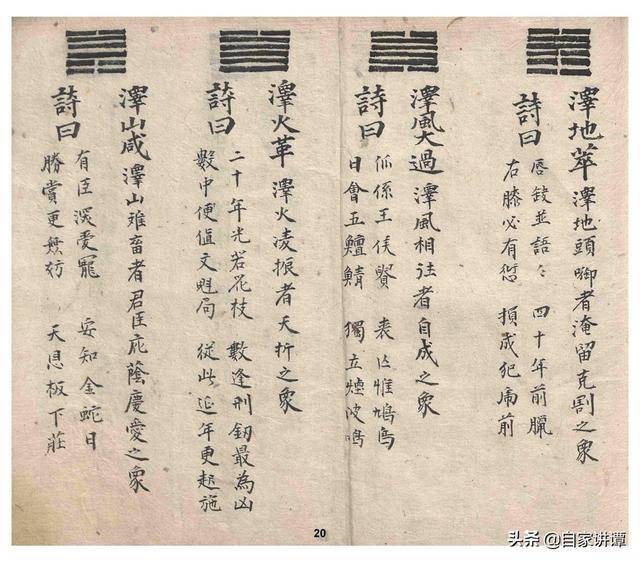 澤地萃 澤地頭啣者淹留克割之象
詩曰
唇鼓並語々 四十年前臘
右膝必有愆 損歲犯席前
澤風大過 澤風相往者自成之象
詩曰
係王侯賢 表 惟鳩鳥
日會五鱣鯖 獨立煙波鳴
澤火革 澤火凌振者夭折之象
詩曰
二十年光若花枝 數逢刑釰最為凶
數中便值文魁局 從此延年更起施
澤山咸 澤山难畜者君臣庇蔭慶愛之象
詩曰
有臣深愛寵 安知金蛇日
勝賞更無妨 天恩板下莊
20
头条 @自家讲谭